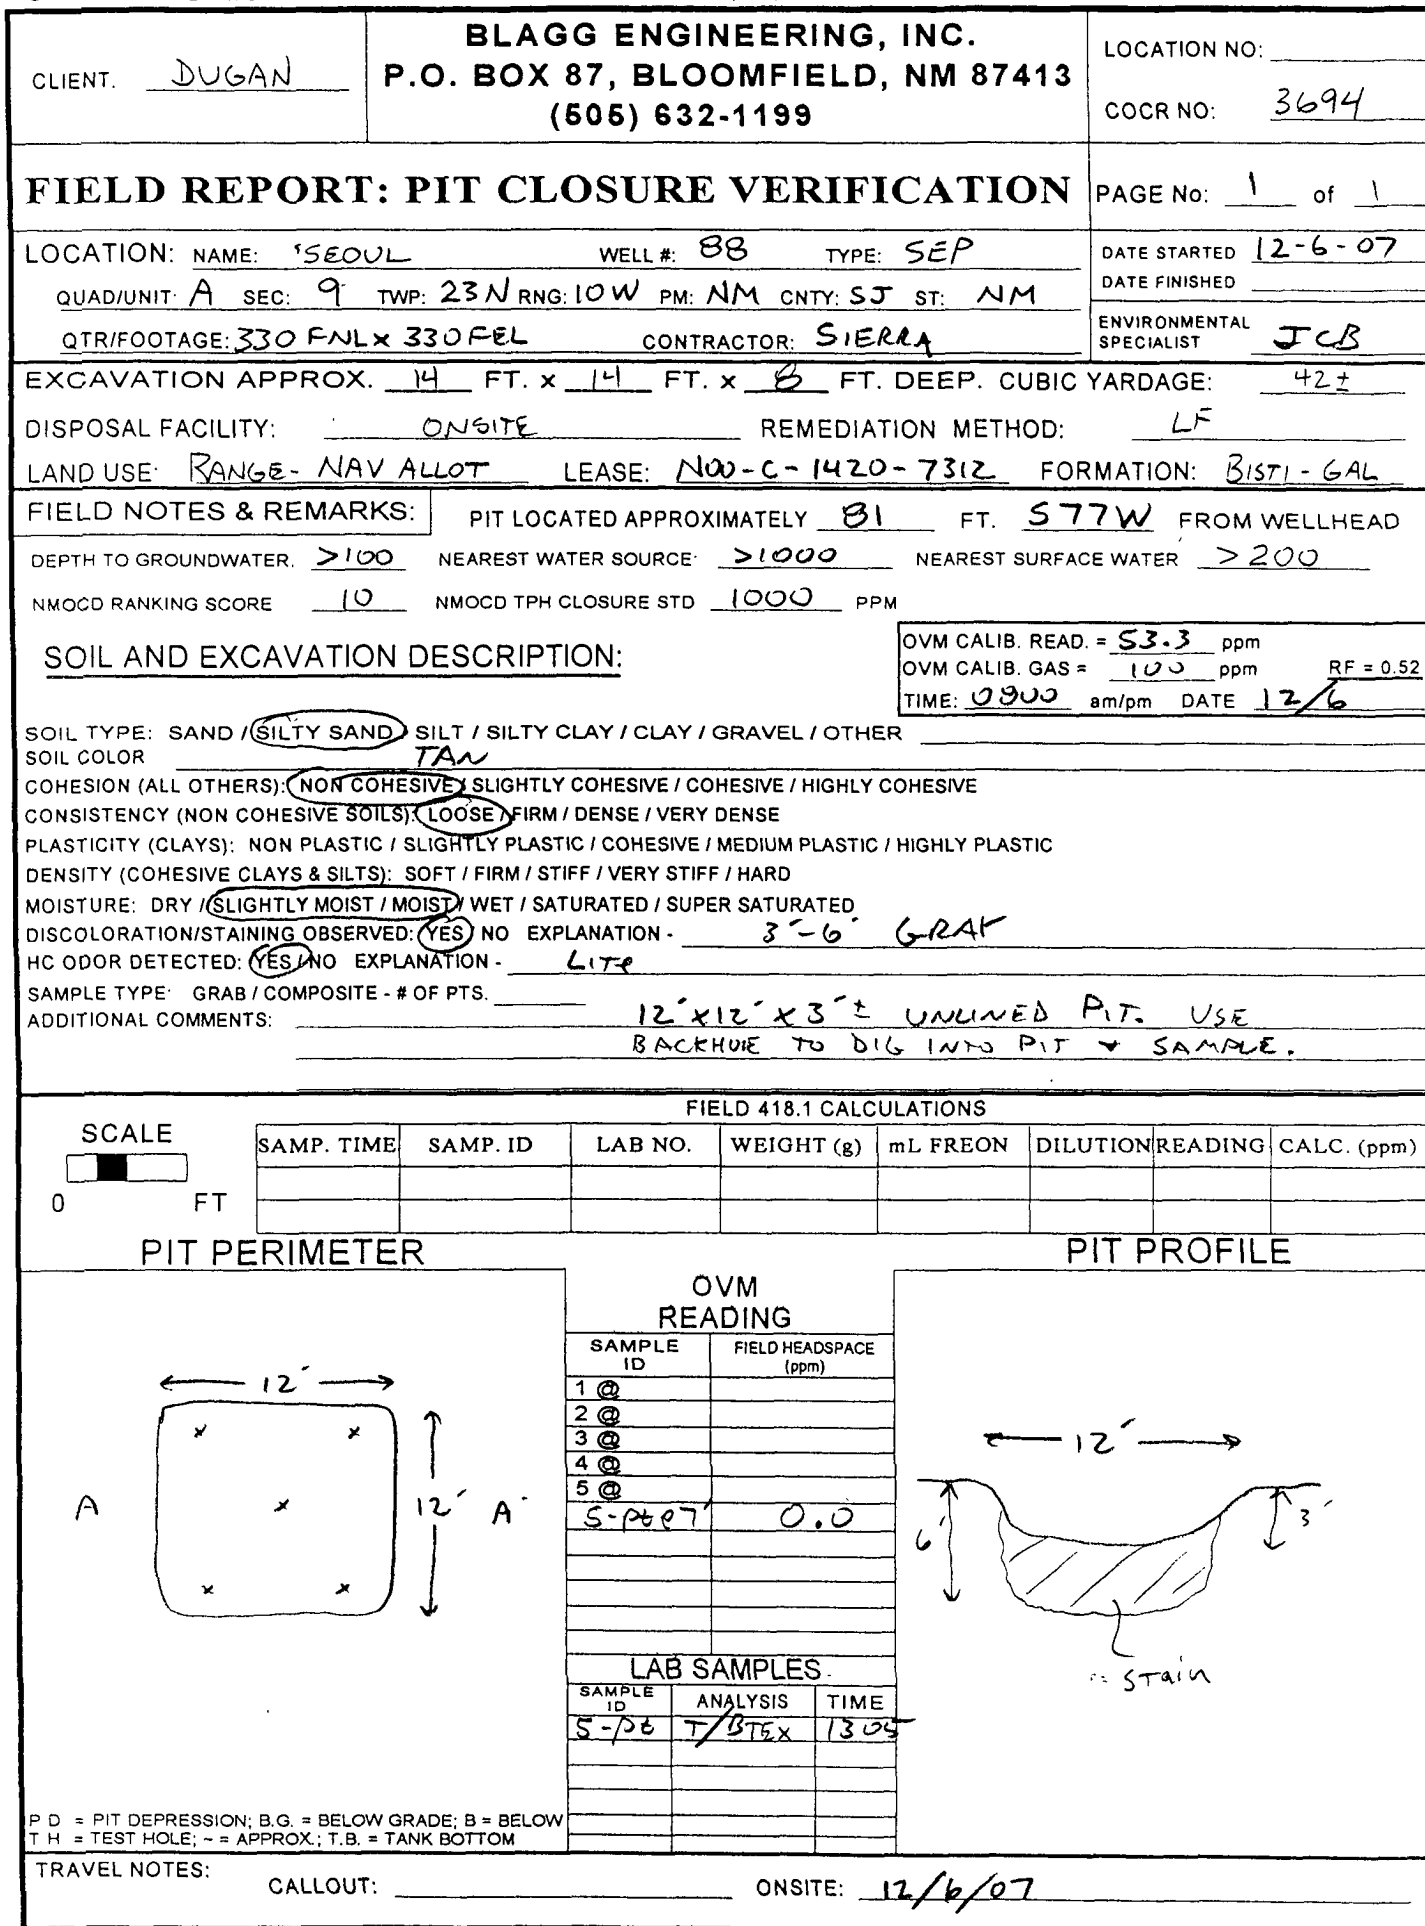 CLIENT. DUGAN
BLAGG ENGINEERING, INC.
P.O. BOX 87, BLOOMFIELD, NM 87413
(505) 632-1199
LOCATION NO:
COCR NO: 3694
FIELD REPORT: PIT CLOSURE VERIFICATION
PAGE No: 1 of 1
LOCATION: NAME: SEOUL WELL #: 88 TYPE: SEP
QUAD/UNIT: A SEC: 9 TWP: 23N RNG: 10W PM: NM CNTY: SJ ST: NM
QTR/FOOTAGE: 330 FNL x 330 FEL CONTRACTOR: SIERRA
DATE STARTED 12-6-07
DATE FINISHED
ENVIRONMENTAL
SPECIALIST JCB
EXCAVATION APPROX. 14 FT. x 14 FT. x 8 FT. DEEP. CUBIC YARDAGE: 42±
DISPOSAL FACILITY: ONSITE REMEDIATION METHOD: LF
LAND USE: RANGE - NAV ALLOT LEASE: NOO-C-1420-7312 FORMATION: BISTI - GAL
FIELD NOTES & REMARKS: PIT LOCATED APPROXIMATELY 81 FT. S77W FROM WELLHEAD
DEPTH TO GROUNDWATER. >100 NEAREST WATER SOURCE: >1000 NEAREST SURFACE WATER >200
NMOCD RANKING SCORE 10 NMOCD TPH CLOSURE STD 1000 PPM
SOIL AND EXCAVATION DESCRIPTION:
OVM CALIB. READ. = 53.3 ppm
OVM CALIB. GAS = 100 ppm RF = 0.52
TIME: 0900 am/pm DATE 12/6
SOIL TYPE: SAND / SILTY SAND / SILT / SILTY CLAY / CLAY / GRAVEL / OTHER
SOIL COLOR TAN
COHESION (ALL OTHERS): NON COHESIVE / SLIGHTLY COHESIVE / COHESIVE / HIGHLY COHESIVE
CONSISTENCY (NON COHESIVE SOILS): LOOSE / FIRM / DENSE / VERY DENSE
PLASTICITY (CLAYS): NON PLASTIC / SLIGHTLY PLASTIC / COHESIVE / MEDIUM PLASTIC / HIGHLY PLASTIC
DENSITY (COHESIVE CLAYS & SILTS): SOFT / FIRM / STIFF / VERY STIFF / HARD
MOISTURE: DRY / SLIGHTLY MOIST / MOIST / WET / SATURATED / SUPER SATURATED
DISCOLORATION/STAINING OBSERVED: YES / NO EXPLANATION - 3'-6' GRAY
HC ODOR DETECTED: YES / NO EXPLANATION - LITE
SAMPLE TYPE: GRAB / COMPOSITE - # OF PTS.
ADDITIONAL COMMENTS: 12' x 12' x 3' ± UNLINED PIT. USE
BACKHOE TO DIG INTO PIT + SAMPLE.
FIELD 418.1 CALCULATIONS
SCALE
0 FT
SAMP. TIME SAMP. ID LAB NO. WEIGHT (g) mL FREON DILUTION READING CALC. (ppm)
PIT PERIMETER
PIT PROFILE
OVM
READING
SAMPLE ID FIELD HEADSPACE (ppm)
1 @
2 @
3 @
4 @
5 @
5-pt @ 7' 0.0
LAB SAMPLES
SAMPLE ID ANALYSIS TIME
5-pt T/BTEX 1305
12'
x x
A x 12' A'
x x
12'
6' 3'
= Stain
P D = PIT DEPRESSION; B.G. = BELOW GRADE; B = BELOW
T H = TEST HOLE; ~ = APPROX.; T.B. = TANK BOTTOM
TRAVEL NOTES: CALLOUT: ONSITE: 12/6/07